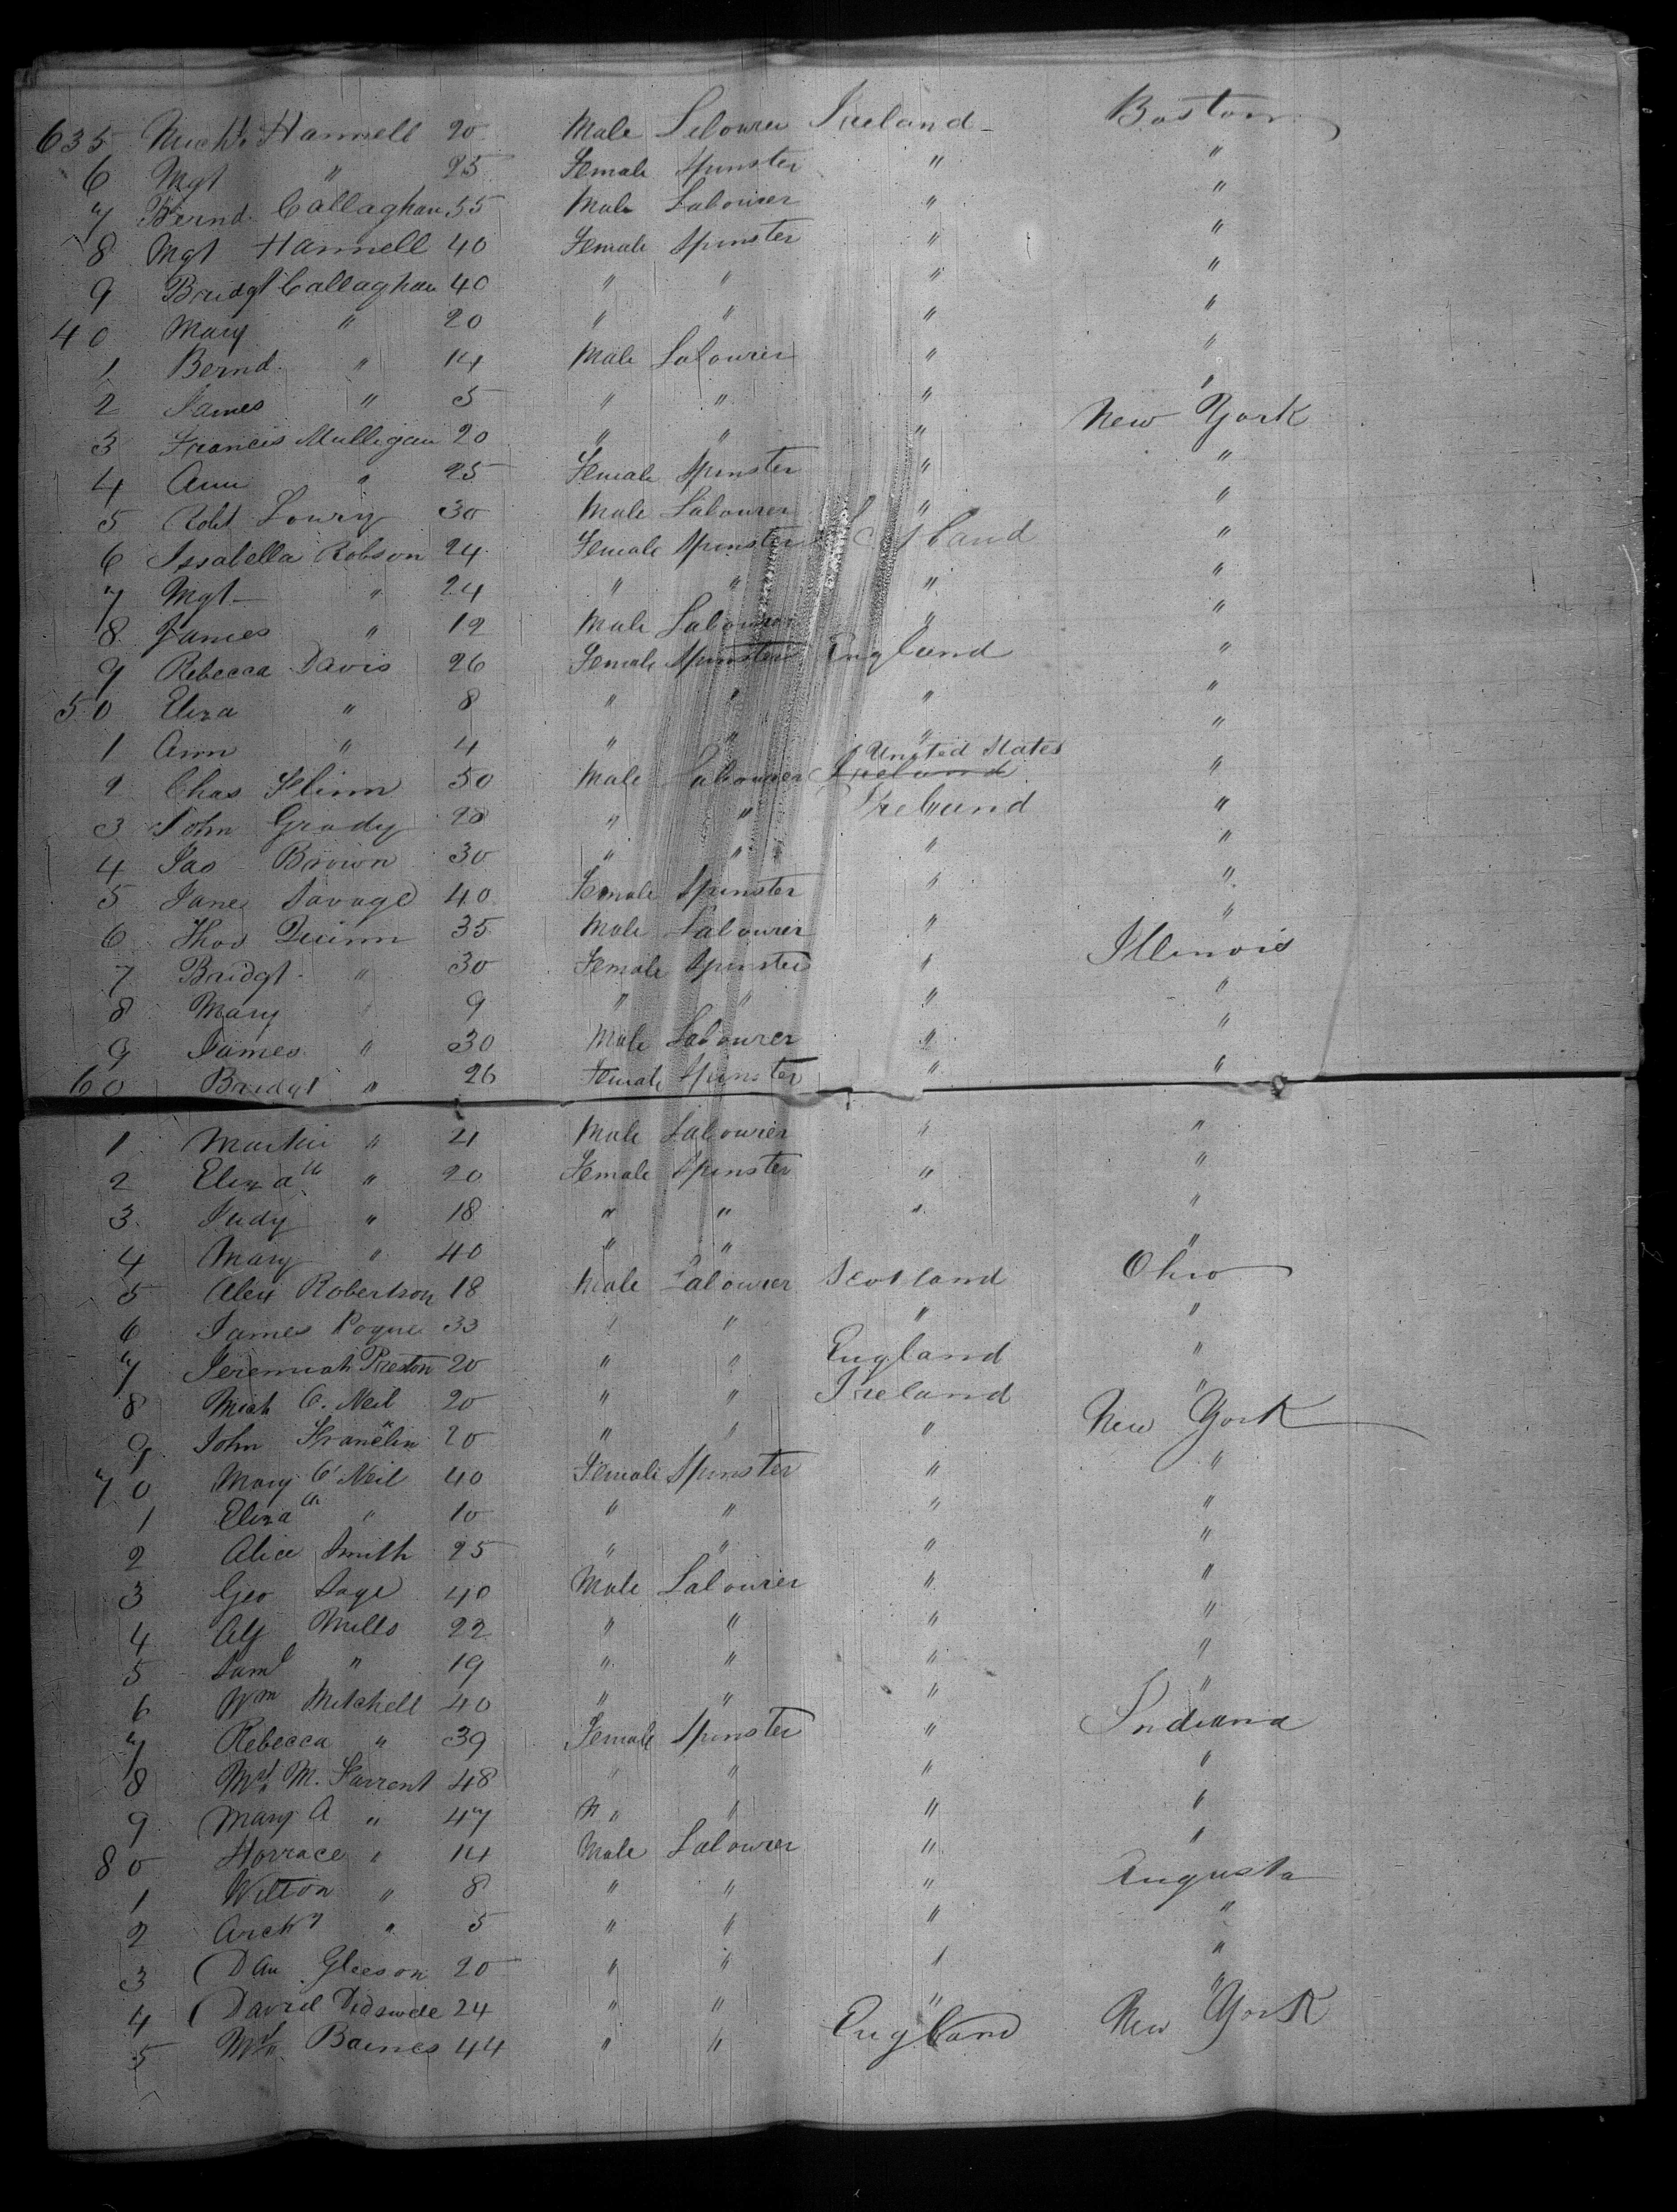 635 Michl. Hannell 20 Male Labourer Ireland Boston
6 Mgt " 25 Female Spinster " "
7 Bernd. Callaghan 55 Male Labourer " "
8 Mgt Hannell 40 Female Spinster " "
9 Bridgt Callaghan 40 " " " "
40 Mary " 20 " " " "
1 Bernd. " 14 Male Labourer " "
2 James " 5 " " " "
3 Francis Mulligan 20 " " " New York
4 Ann " 25 Female Spinster " "
5 Robt Lowry 30 Male Labourer " "
6 Issabella Robson 24 Female Spinster Scotland "
7 Mgt " 24 " " " "
8 James " 12 Male Labourer " "
9 Rebecca Davis 26 Female Spinster England "
50 Eliza " 8 " " " "
1 Ann " 4 " " " "
United States
2 Chas Flinn 50 Male Labourer Ireland "
3 John Grady 28 " " Ireland "
4 Jas Brown 30 " " " "
5 Jane Savage 40 Female Spinster " "
6 Thos Quinn 35 Male Labourer " "
7 Bridgt " 30 Female Spinster " Illinois
8 Mary " 9 " " " "
9 James " 30 Male Labourer " "
60 Bridgt " 26 Female Spinster " "
1 Martin " 4 Male Labourer " "
2 Elizath " 20 Female Spinster " "
3 Judy " 18 " " " "
4 Mary " 40 " " "
5 Alex Robertson 18 Male Labourer Scotland Ohio
6 James Pogue 33 " " " "
7 Jeremiah Preston 20 " " England "
8 Mich O. Neil 20 " " Ireland "
9 John Franclin 20 " " " New York
70 Mary O'Neil 40 Female Spinster " "
1 Elizath " 10 " " " "
2 Alice Smith 25 " " " "
3 Geo Sage 40 Male Labourer " "
4 Alf Mills 22 " " " "
5 Saml " 19 " " " "
6 Wm Mitchell 40 " " " "
7 Rebecca " 39 Female Spinster " Indiana
8 M. 48 " " " "
9 Mary A " 47 " " " "
80 Horrace " 14 Male Labourer " "
1 Wilton " 8 " " " Augusta
2 Archd " 5 " " " "
3 Dan Gleeson 20 " " " "
4 David 24 " " " "
5 Baines 44 " " England New York